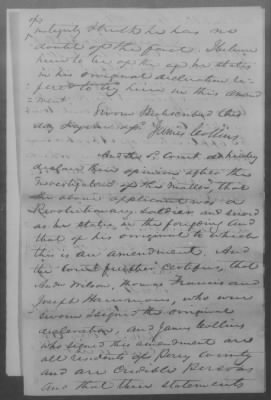 of
integrity & truth he has no
doubt of the fact. I believe
him to be of the age he states
in his original declaration &
in this amend
ment
Sworn & subscribed this
day & year
James Collins
And the sd. Court do hereby
declare their opinion after the
investigation of the matter, that
the above applicant was a
Revolutionary Soldier and served
as he states, in the foregoing and
that of his original to which
this is an amendment. And
the Court further certifies, that
Andw Wilson, Thomas Francis and
Joseph Hammons, who were
sworn & signed the original
declaration, and James Collins
who signed this amendment are
all residents of Perry County
and are Credible Persons
And that their statements